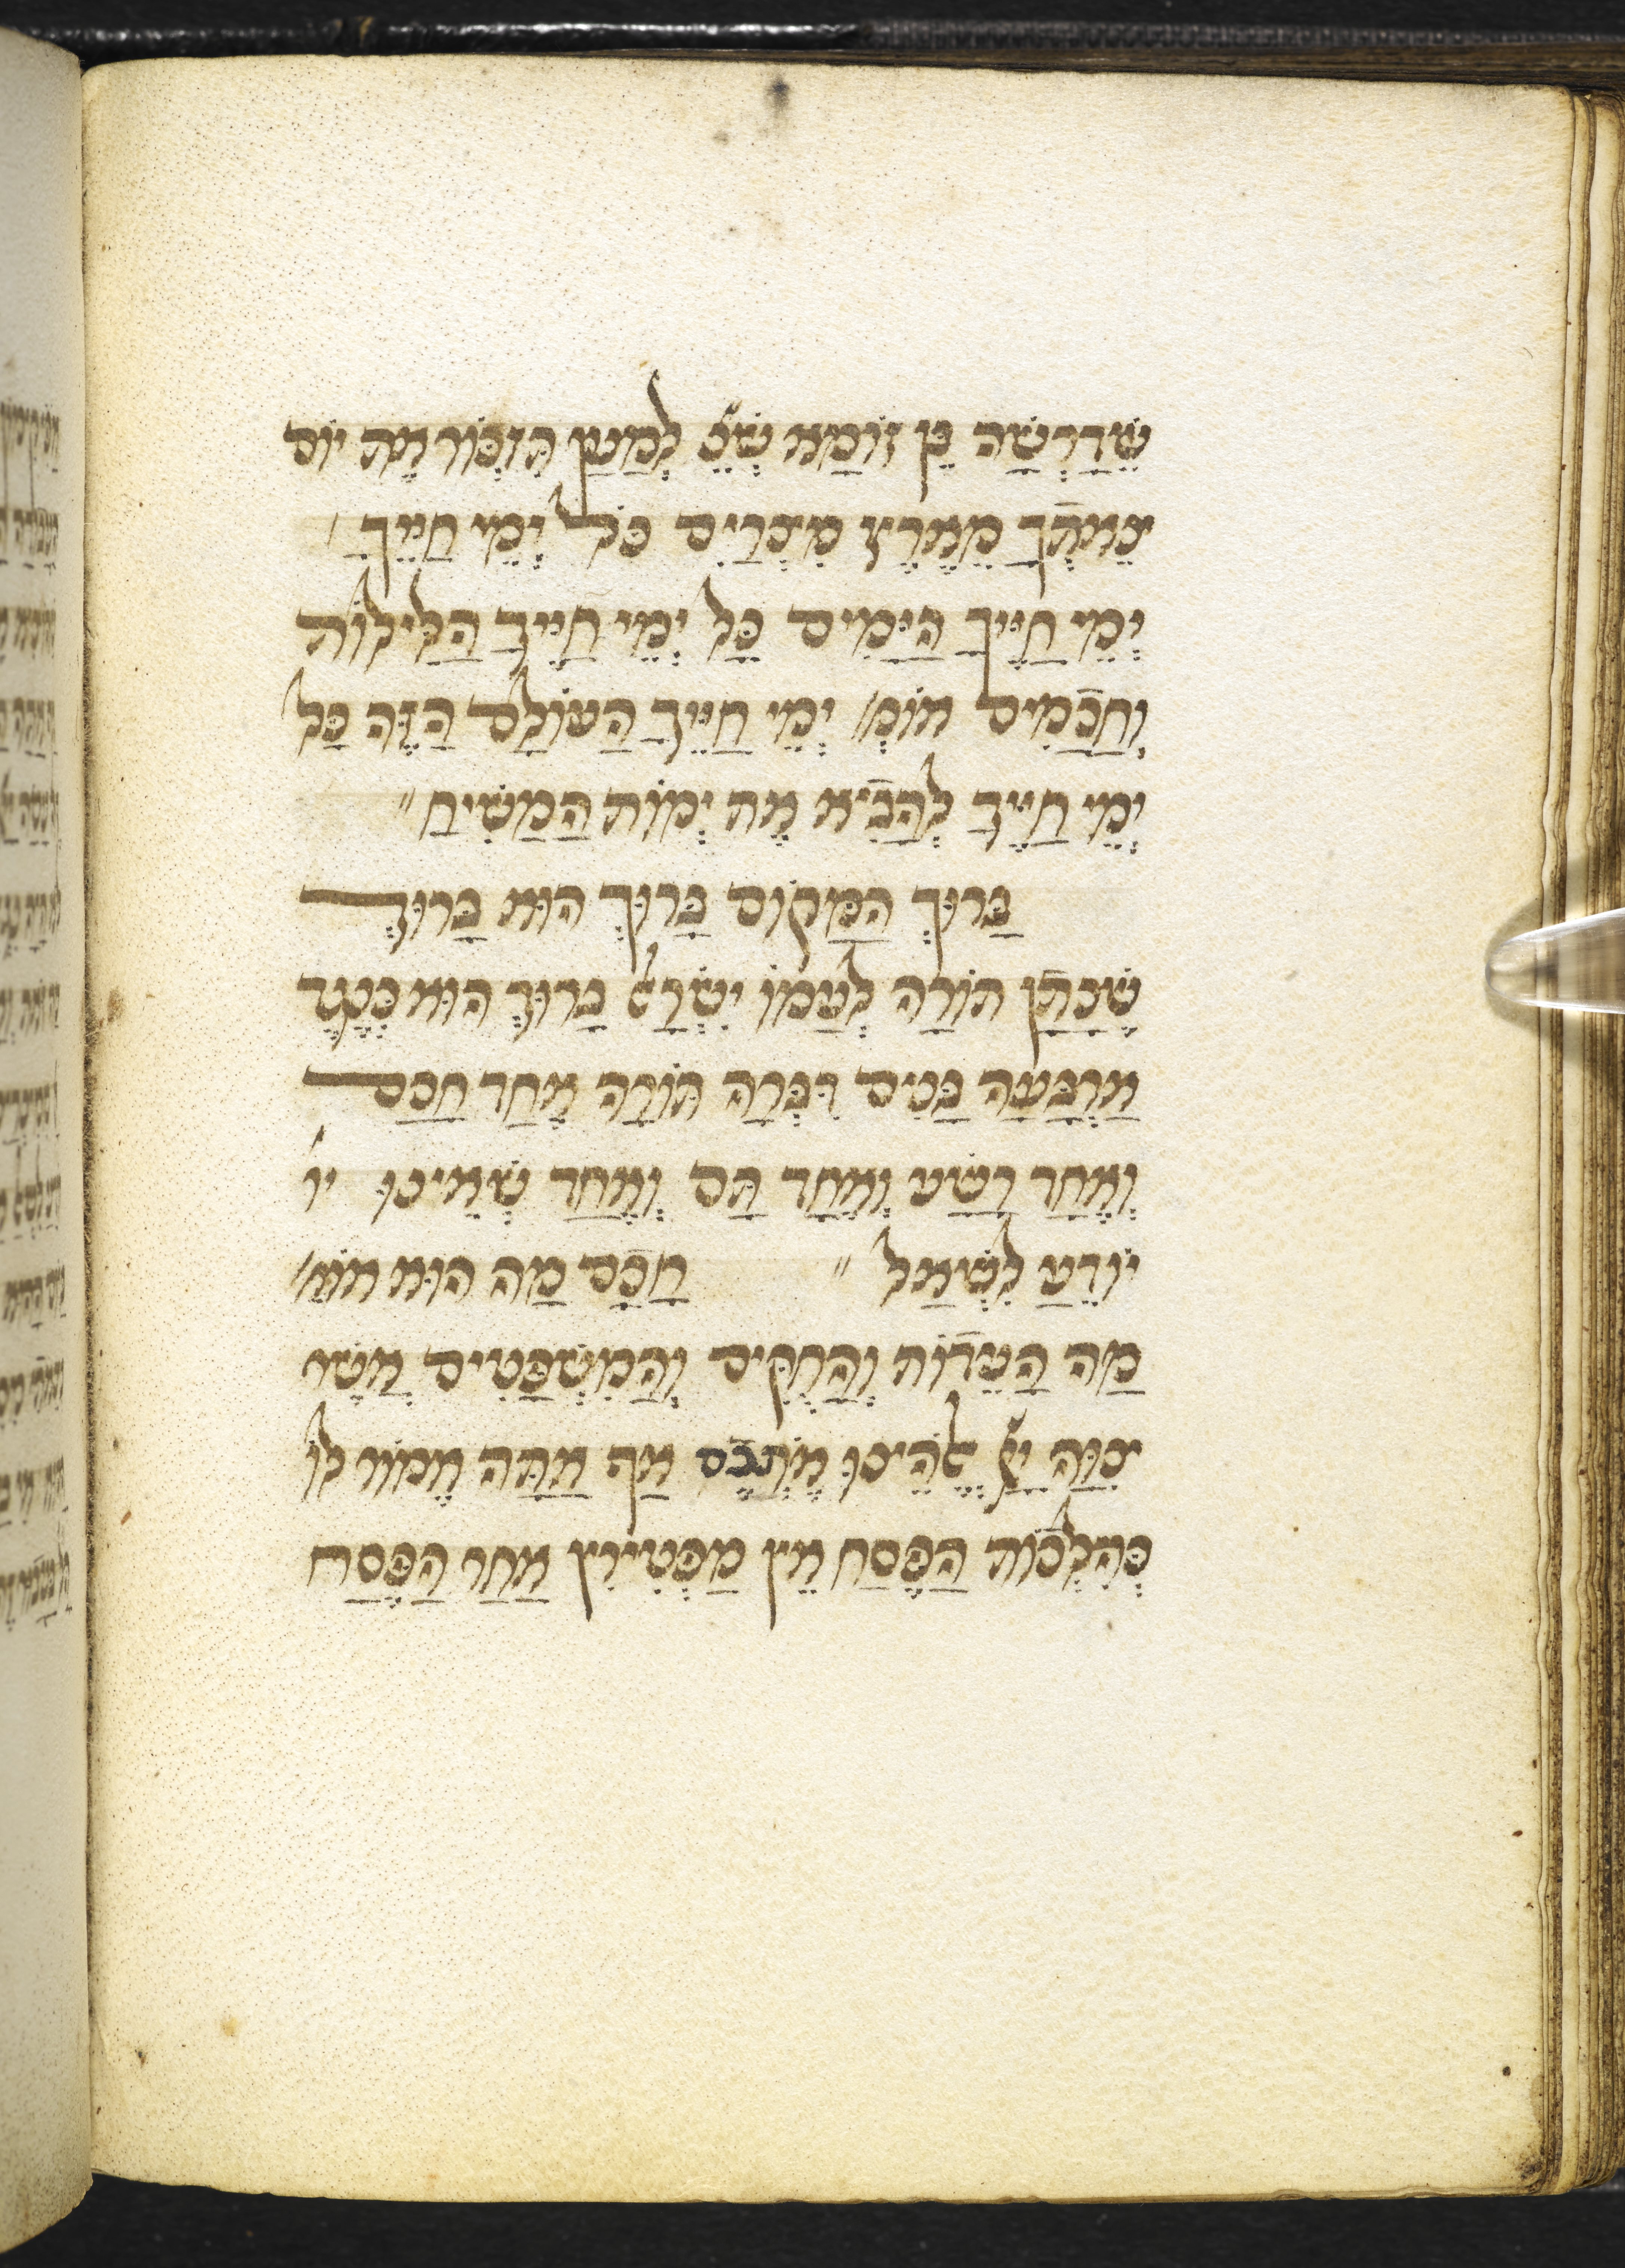 שֶׁדְרָשָׁהּ בֶּן זוֹמָא שֶׁנֶּ׳ לְמַעַן תִּזְכּוֹר אֶת יוֹם
צֵאתְךָ מֵאֶרֶץ מִצְרַיִם כֹּל יְמֵי חַיֶּיךָ ׳
יְמֵי חַיֶּיךָ הַיָּמִים כָּל יְמֵי חַיֶּיךָ הַלֵּילוֹת
וְחֲכָמִים אוֹמְ׳ יְמֵי חַיֶּיךָ הָעוֹלָם הַזֶּה כָּל
יְמֵי חַיֶּיךָ לְהָבִיא אֶת יְמוֹת הַמָּשִׁיחַ ״
בָּרוּךְ הַמָּקוֹם בָּרוּךְ הוּא בָּרוּךְ
שֶׁנָּתַן תּוֹרָה לְעַמּוֹ יִשְׂרָאֵל בָּרוּךְ הוּא כְּנֶגֶד
אַרְבָּעָה בָנִים דִּבְּרָה תּוֹרָה אֶחָד חָכָם
וְאֶחָד רָשָׁע וְאֶחָד תָּם וְאֶחָד שֶׁאֵינוֹ יו
יוֹדֵעַ לִשְׁאַל ״ חָכָם מַה הוּא אוֹמֵ׳
מַה הָעֵדוֹת וְהַחֻקִּים וְהַמִּשְׁפָּטִים אֲשֶׁר
צִוָּה יְיָ׳ אֱלֹהֵינוּ אֶתְכֶם אַף אַתָּה אֱמוֹר לוֹ
כְּהִלְכוֹת הַפֶּסַח אֵין מַפְטִירִין אַחַר הַפֶּסַח